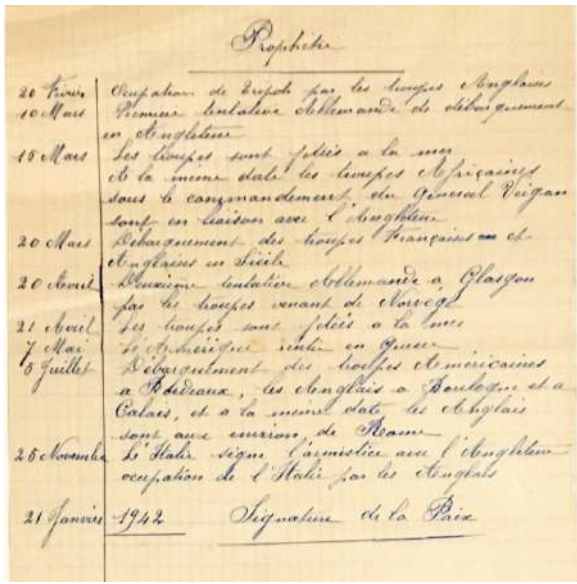 Prophétie
20 Fevrier Ocupation de Tripoli par les troupes Anglaises
10 Mars Premiere tentative Allemande de débarquement
en Angleterre
15 Mars Les troupes sont jetées a la mer
A la même date les troupes Africaines
sous le commandement du Général Veigan
sont en liaison avec l'Angleterre
20 Mars Débarquement des troupes Françaises et
Anglaises en Sicile
20 Avril Deuxième tentative Allemande a Glasgow
par les troupes venant de Norvège
21 Avril Les troupes sont jetées a la mer
7 Mai L'Amérique rentre en guerre
5 Juillet Débarquement des troupes Américaines
a Bordeaux, les Anglais a Boulogne et a
Calais, et a la meme date les Anglais
sont aux environ de Rome
25 Novembre L'Italie signe l'armistice avec l'Angleterre
ocupation de l'Italie par les Anglais
21 Janvier 1942 Signature de la Paix